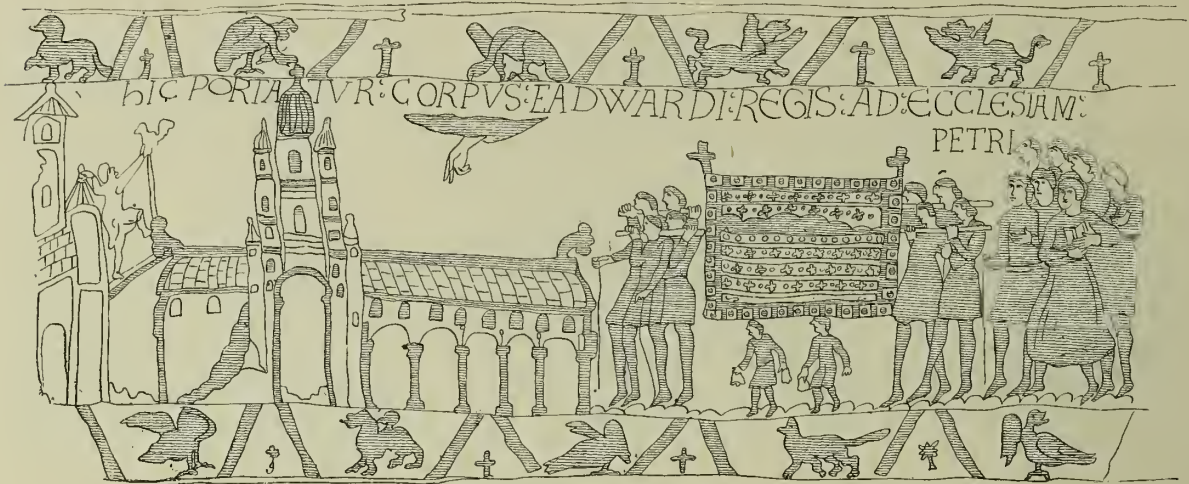 hIC PORTATVR:CORPVS:EADWARDI:REGIS:AD:ECCLESIAM:
PETRI